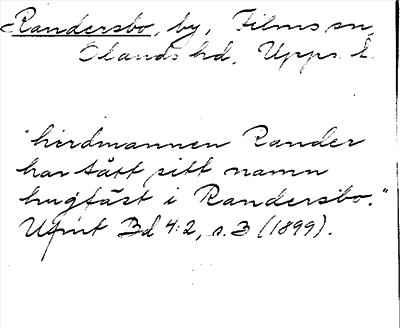 Randersbo, by, Films sn,
Olands hd, Upps. l.
"hirdmannen Rander
har fått sitt namn
hugfäst i Randersbo."
Ufmt Bd 4:2, s. 3 (1899).